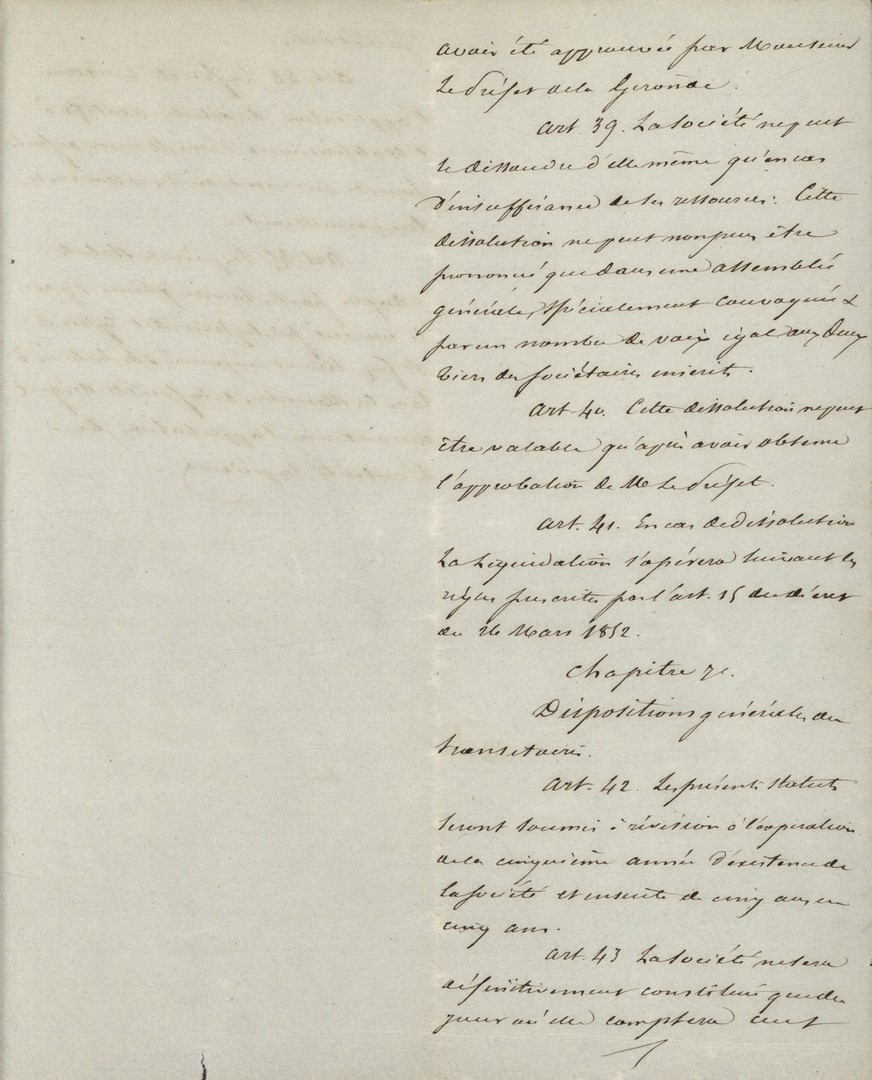 avoir été approuvée par Monsieur
Le Préfet de la Gironde.
Art. 39. La Société ne peut
se dissoudre d'elle même qu'en cas
d'insuffisance de ses ressources. Cette
dissolution ne peut non plus être
prononcée que dans une assemblée
générale, spécialement convoquée &
par un nombre de voix égal aux deux
tiers des Sociétaires inscrits.
Art. 40. Cette dissolution ne peut
être valable qu'après avoir obtenu
l'approbation de Mr Le Préfet.
Art. 41. En cas de dissolution
La Liquidation s'opérera suivant les
règles prescrites par l'art. 15 du décret
du 26 Mars 1852.
Chapitre 7e.
Dispositions générales ou
transitoires.
Art. 42. Les présents Statuts
seront soumis à révision à l'expiration
de la cinquième année d'existence de
la Société et ensuite de cinq ans en
cinq ans.
Art. 43 La Société ne sera
définitivement constituée que du
jour où elle comptera cent